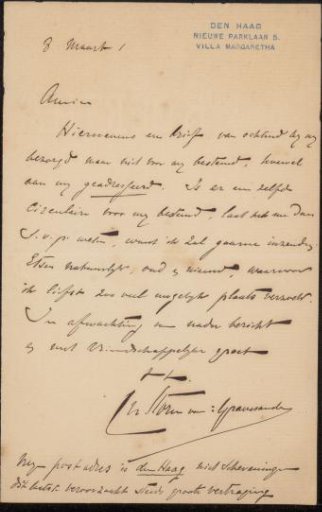 DEN HAAG
NIEUWE PARKLAAN 5.
VILLA MARGARETHA
8 Maart
Amice
Hiernevens een brief van ochtend bij mij
bezorgd maar niet voor mij bestemd, hoewel
aan mij geadresseerd. Is er een zelfde
circulaire voor mij bestemd, laat het me dan
s.v.p. weten, want ik zal gaarne inzenden,
Etsen natuurlijk, oud & nieuw, waarvoor
ik liefst zoo veel mogelijk plaats verzoek.
In afwachting van nader bericht
& met vriendschappelijke groet
tt.
CN Storm van 's Gravesande
Mijn postadres is den Haag niet Scheveningen
dit laatste veroorzaakt steeds groote vertraging